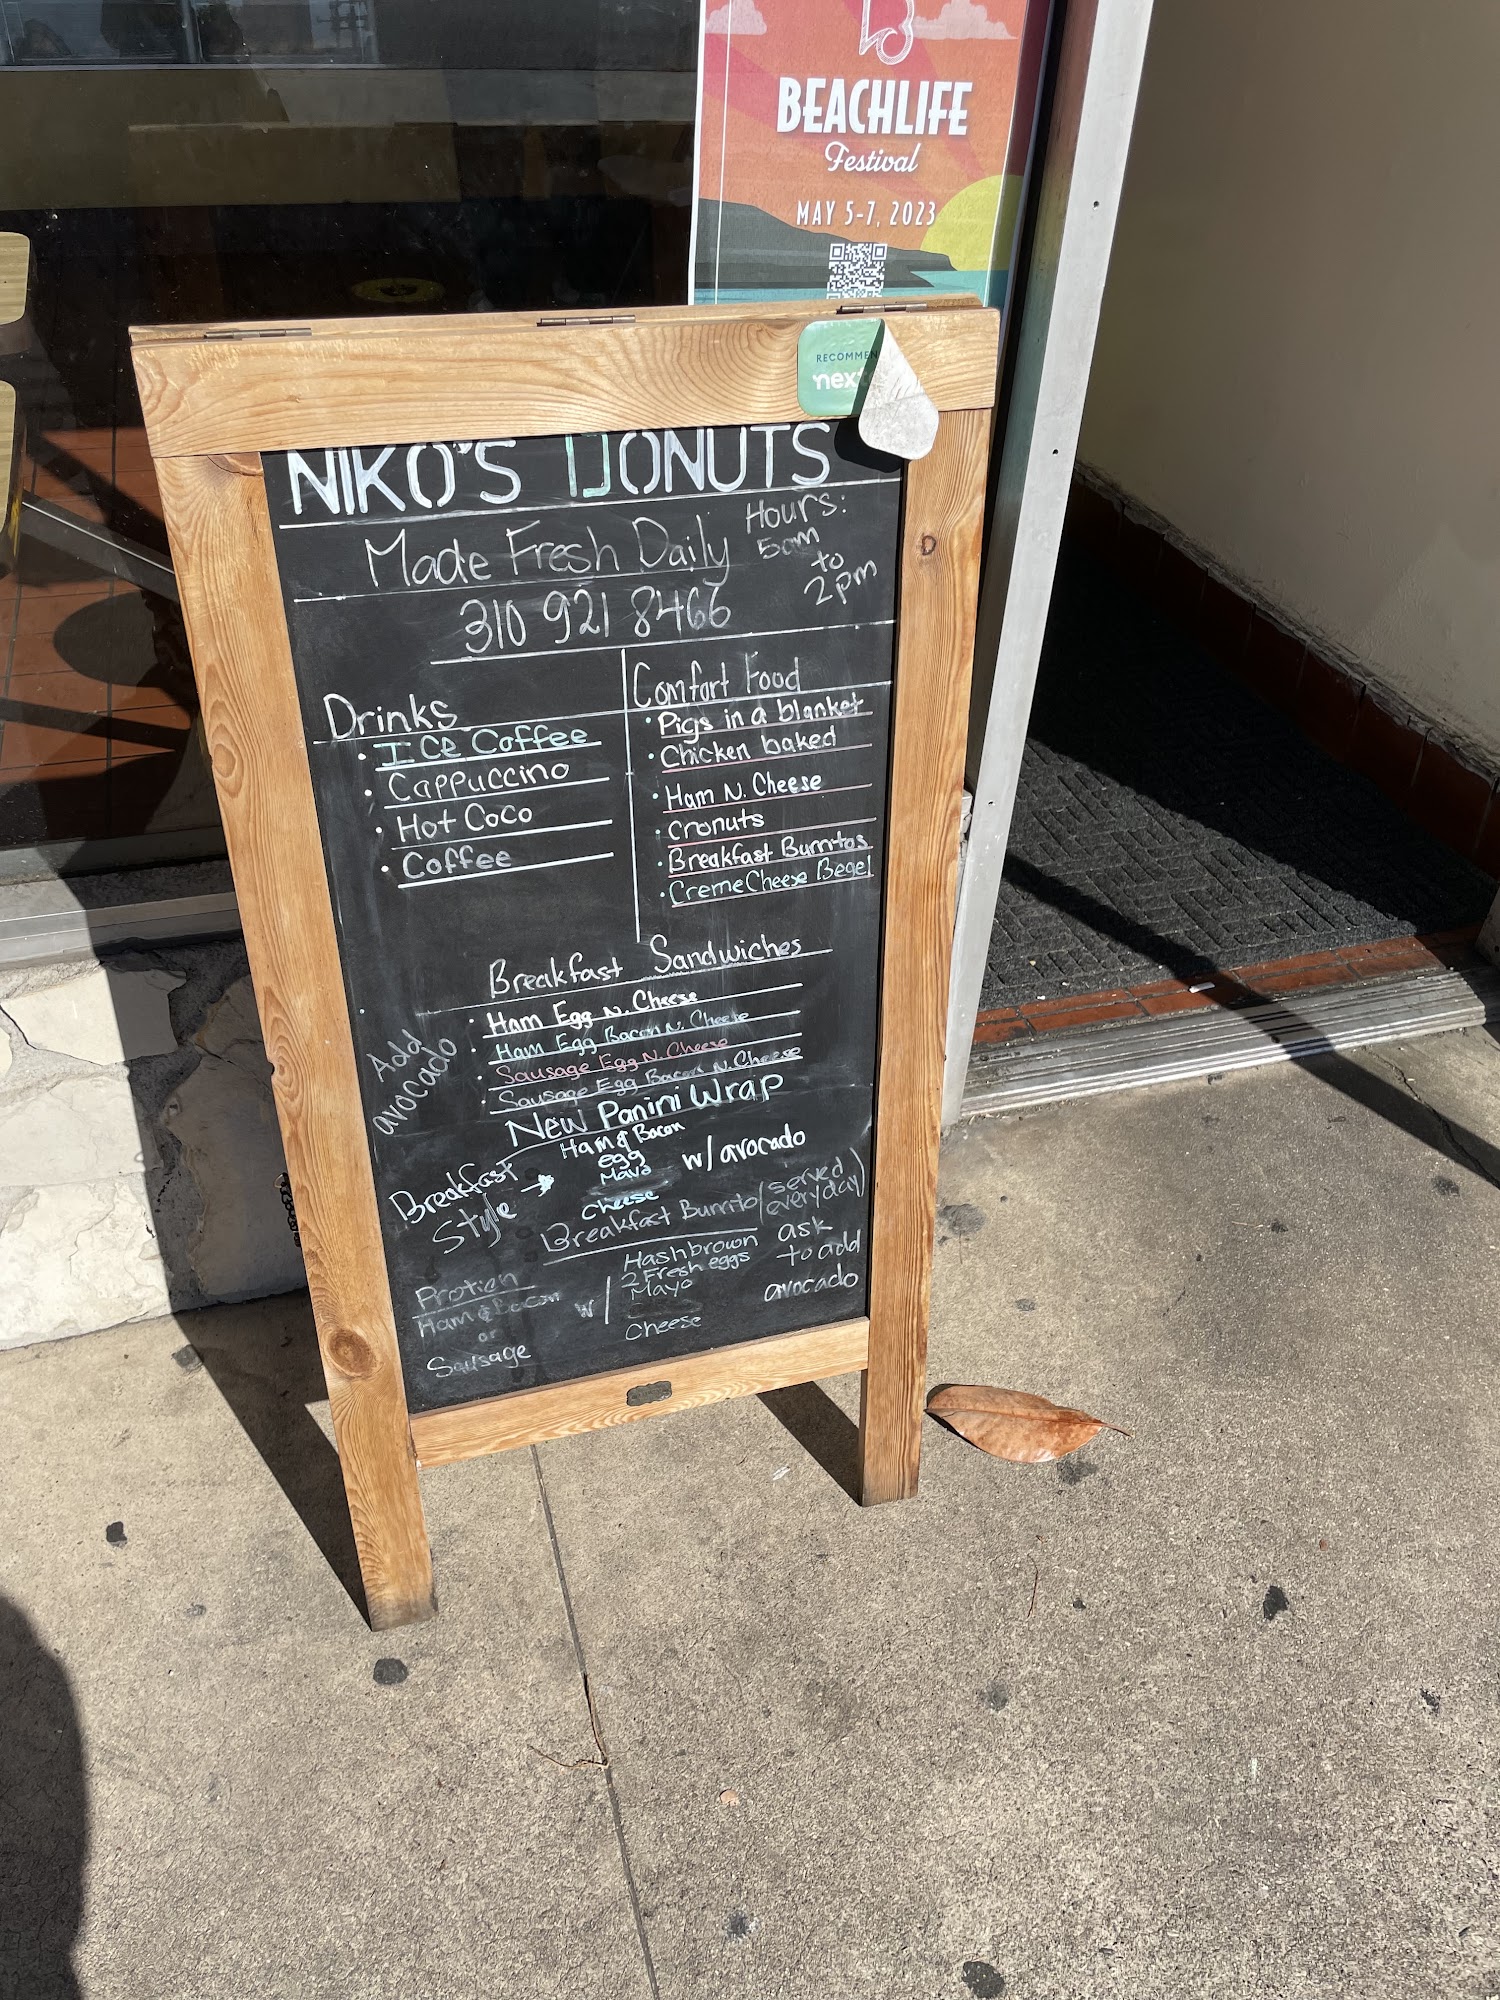 BEACHLIFE
Festival
MAY 5-7, 2023
RECOMMEN
next
NIKO'S DONUTS
Made Fresh Daily
Hours:
5am
to
2pm
310 921 8466
Drinks
• ICe Coffee
• Cappuccino
• Hot Coco
• Coffee
Comfort Food
• Pigs in a blanket
• Chicken baked
• Ham N. Cheese
• Cronuts
• Breakfast Burritos
• Creme Cheese Begel
Breakfast Sandwiches
• Ham Egg N. Cheese
• Ham Egg Bacon N. Cheese
• Sausage Egg N. Cheese
• Sausage Egg Bacon N. Cheese
Add
avocado
New Panini Wrap
Breakfast
Style →
Ham & Bacon
egg
Mayo
Cheese
w/ avocado
Breakfast Burrito (served
everyday)
Protien
Ham & Bacon
or
Sausage
w/
Hashbrown
2 Fresh eggs
Mayo
Cheese
ask
to add
avocado